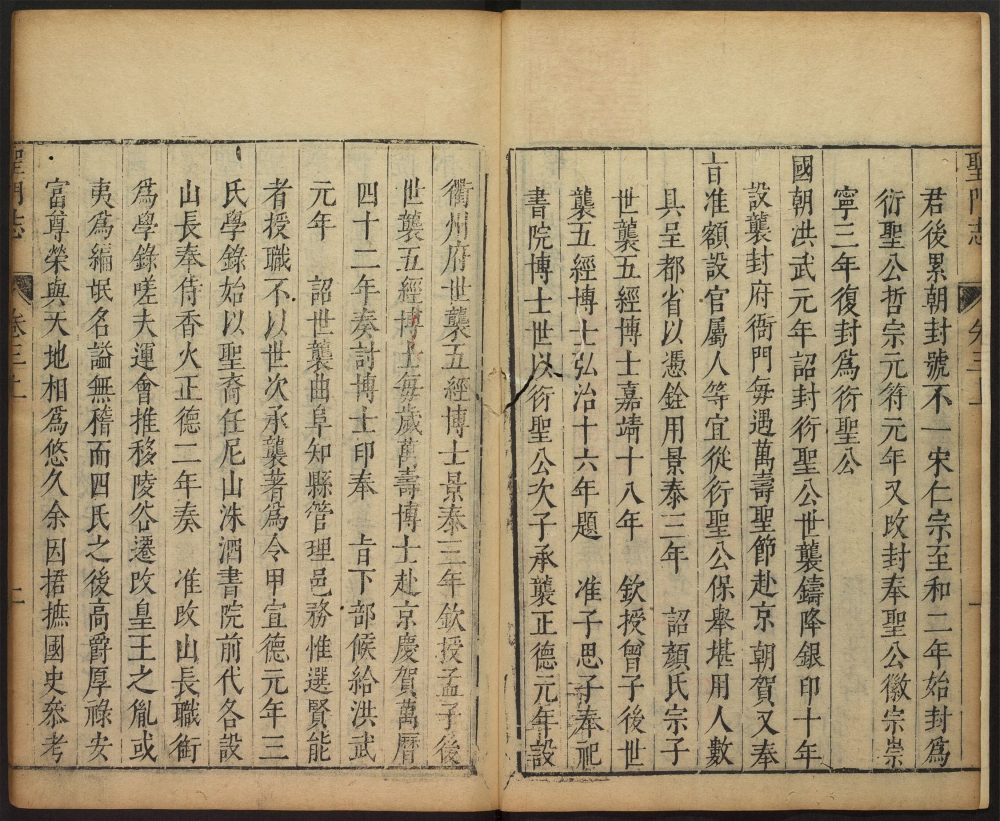 聖門志
卷三
一
君後累朝封號不一宋仁宗至和二年始封爲
衍聖公哲宗元符元年又改封奉聖公徽宗崇
寧三年復封爲衍聖公
國朝洪武元年詔封衍聖公世襲鑄降銀印十年
設襲封府衙門每遇萬壽聖節赴京朝賀又奉
旨准額設官屬人等宜從衍聖公保舉堪用人數
具呈都省以憑銓用景泰三年 詔顏氏宗子
世襲五經博士嘉靖十八年 欽授曾子後世
襲五經博士弘治十六年題 准子思子奉祀
書院博士世以衍聖公次子承襲正德元年設
衢州府世襲五經博士景泰三年欽授孟子後
世襲五經博士每歲萬壽博士赴京慶賀萬曆
四十二年奏討博士印奉 旨下部候給洪武
元年 詔世襲曲阜知縣管理邑務惟選賢能
者授職不以世次承襲著爲令甲宣德元年三
氏學錄始以聖裔任尼山洙泗書院前代各設
山長奉侍香火正德二年奏 准改山長職銜
爲學錄嗟夫運會推移陵谷遷改皇王之胤或
夷爲編氓名謚無稽而四氏之後高爵厚祿安
富尊榮與天地相爲悠久余因捃摭國史參考
聖門志
卷三上
二